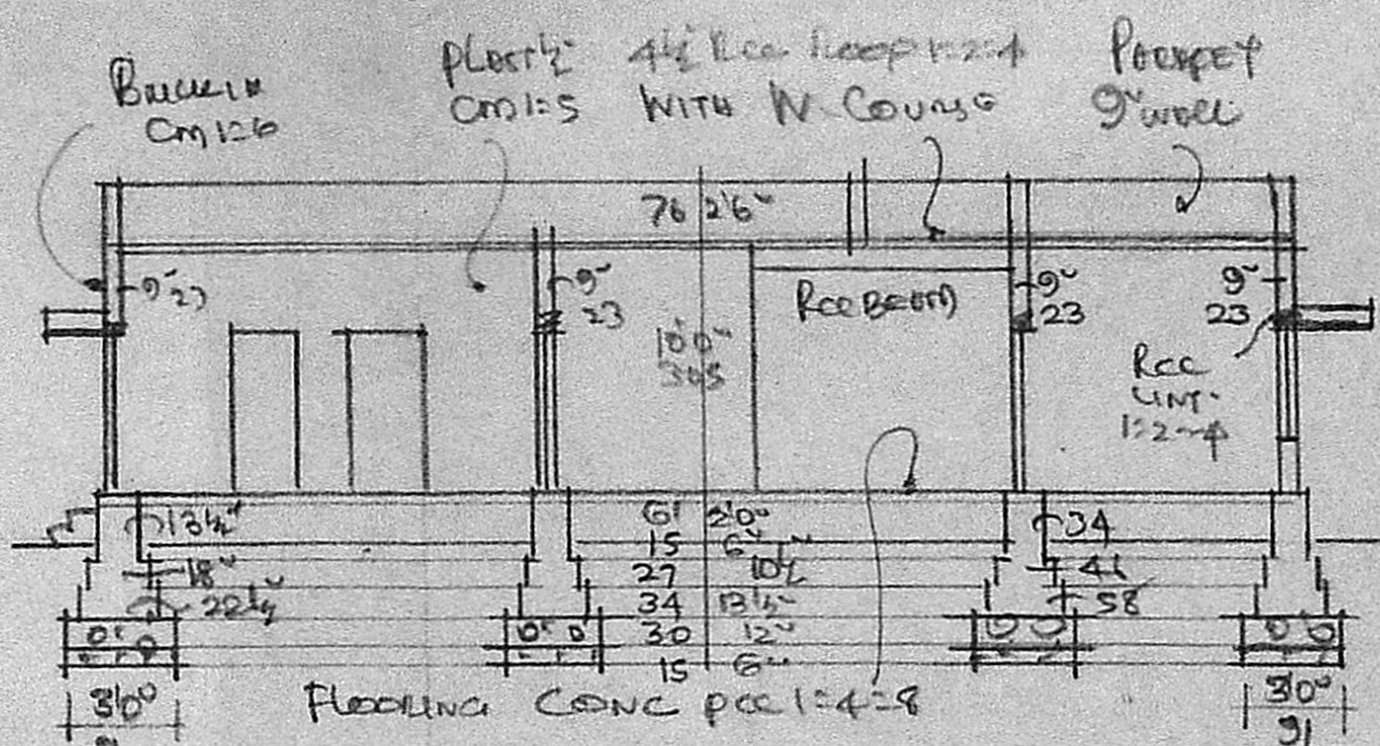 Brickin
CM 1:6
CM 1:5
4½ Rcc Roof 1:2:4
WITH W. COURSE
9" wall
76 2'6"
9" 23
9"
23
10'0"
305
RCC BEAM
9"
23
9"
23
Rcc
LINT.
1:2:4
13½"
18"
22½"
61 2'0"
15 6"
27 10½
34 13½"
30 12"
15 6"
34
41
58
3'0"
91
FLOORING CONC PCC 1:4:8
3'0"
91